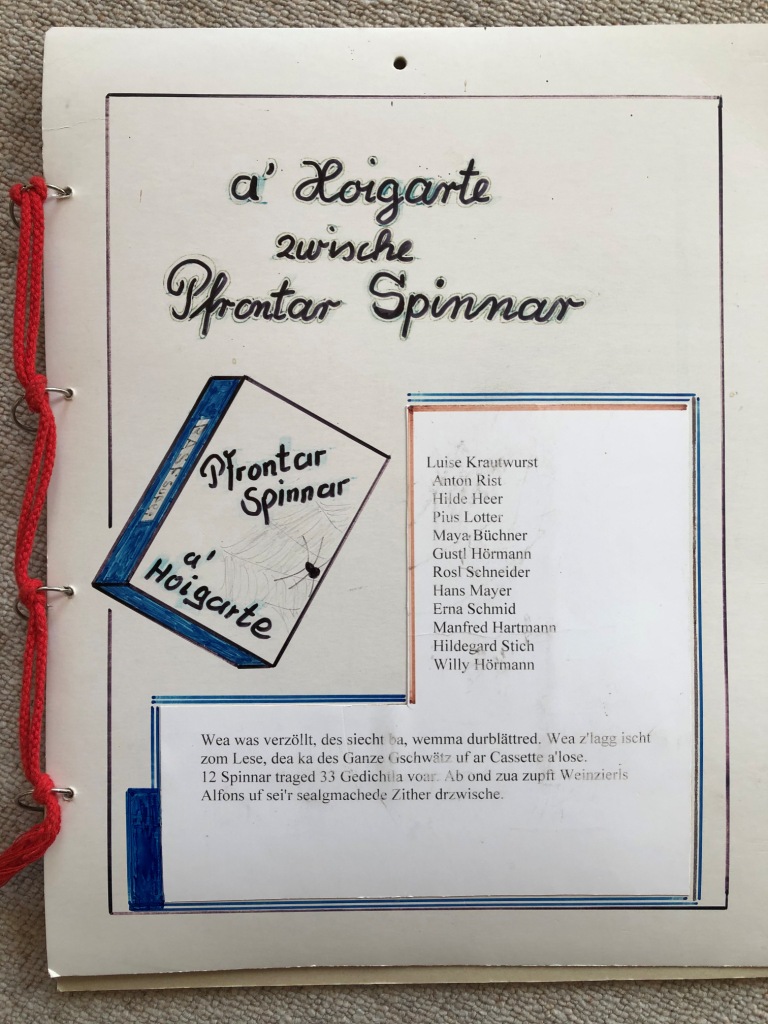 a' Hoigarte
zwische
Pfrontar Spinnar
Pfrontar
Spinnar
a'
Hoigarte
Luise Krautwurst
Anton Rist
Hilde Heer
Pius Lotter
Maya Büchner
Gustl Hörmann
Rosl Schneider
Hans Mayer
Erna Schmid
Manfred Hartmann
Hildegard Stich
Willy Hörmann
Wea was verzöllt, des siecht ba, wemma durblättred. Wea z'lagg ischt
zom Lese, dea ka des Ganze Gschwätz uf ar Cassette a'lose.
12 Spinnar traged 33 Gedichtla voar. Ab ond zua zupft Weinzierls
Alfons uf sei'r sealgmachede Zither drzwische.